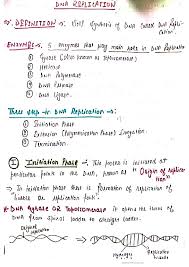 DNA REPLICATION
DEFINITION → : Synthesis of DNA called DNA Repli-
cation.
ENZYMES → : 5 enzymes that play main role in DNA Replication
① Gyrase (also known as topoisomerase)
② Helicase
③ DNA Polymerase
④ DNA
⑤ DNA Ligase.
Three step in DNA Replication → :
① Initiation Phase
② Extension (Polymerisation Phase) Elongation
③ Termination.
① Initiation Phase → : This process is initiated at
particular points in the DNA, known as "Origin of replica-
tion"
→ In initiation phase there is formation of replication
bubble or Replication fork.
★ DNA Gyrase OR Topoisomerase → It opens the form of
DNA from spiral ladder to straight ladder.
Replication
bubble